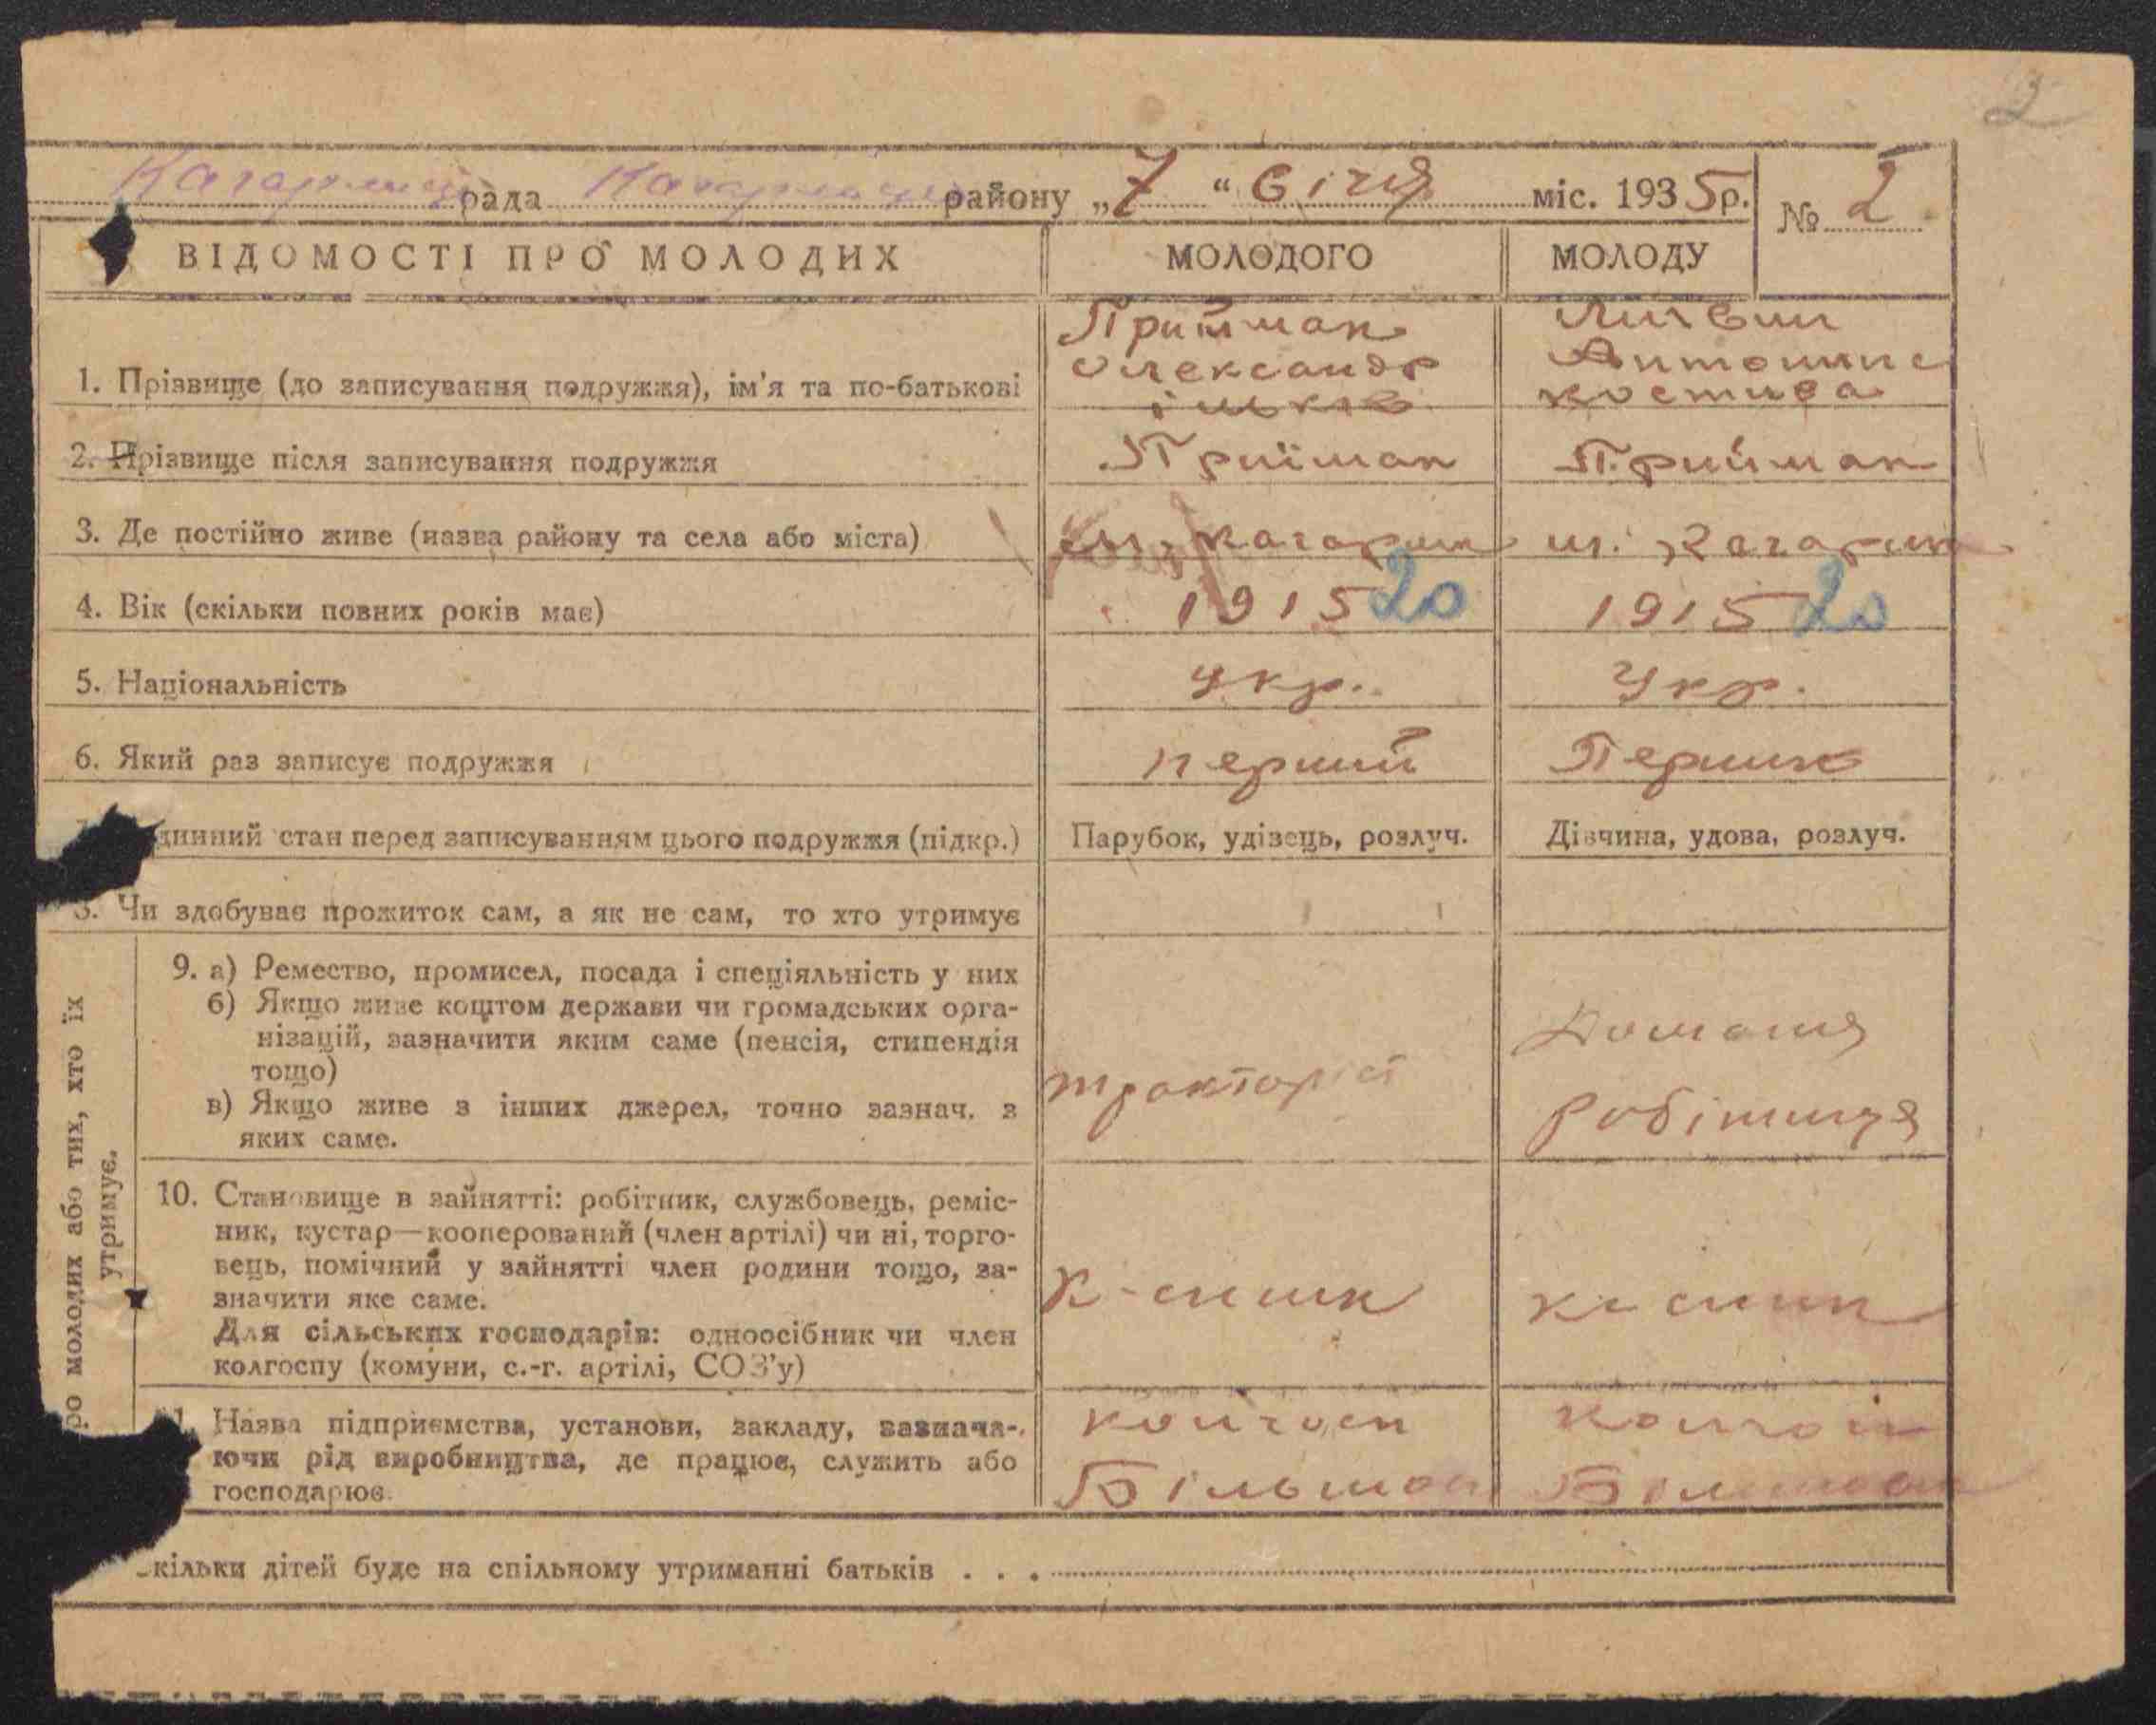 2
Кагарлицька рада Кагарлицького району „7“ Січня міс. 1935р. № 2
ВІДОМОСТІ ПРО МОЛОДИХ МОЛОДОГО МОЛОДУ
Приймак Литвин
Олександр Антонина
1. Прізвище (до записування подружжя), ім'я та по-батькові Ільків Костива
2. Прізвище після записування подружжя Приймак Приймак
3. Де постійно живе (назва району та села або міста) м. Кагарлик м. Кагарлик
4. Вік (скільки повних років має) 1915 20 1915 20
5. Національність Укр. Укр.
6. Який раз записує подружжя перший
динний стан перед записуванням цього подружжя (підкр.) Парубок, удівець, розлуч. Дівчина, удова, розлуч.
8. Чи здобуває прожиток сам, а як не сам, то хто утримує
ро молодих або тих, хто їх
утримує.
9. а) Ремество, промисел, посада і спеціяльність у них
б) Якщо живе коштом держави чи громадських орга-
нізацій, зазначити яким саме (пенсія, стипендія
тощо)
в) Якщо живе з інших джерел, точно зазнач. з
яких саме.
тракторіст
Домашня
робітниця
10. Становище в зайнятті: робітник, службовець, реміс-
ник, кустар—кооперований (член артілі) чи ні, торго-
вець, помічний у зайнятті член родини тощо, за-
значити яке саме.
Для сільських господарів: одноосібник чи член
колгоспу (комуни, с.-г. артілі, СОЗ'у)
К-сник
11. Назва підприємства, установи, закладу, зазнача-
ючи рід виробництва, де працює, служить або
господарює.
колгосп колгосп
Більшов Більшов
кільки дітей буде на спільному утриманні батьків . . .